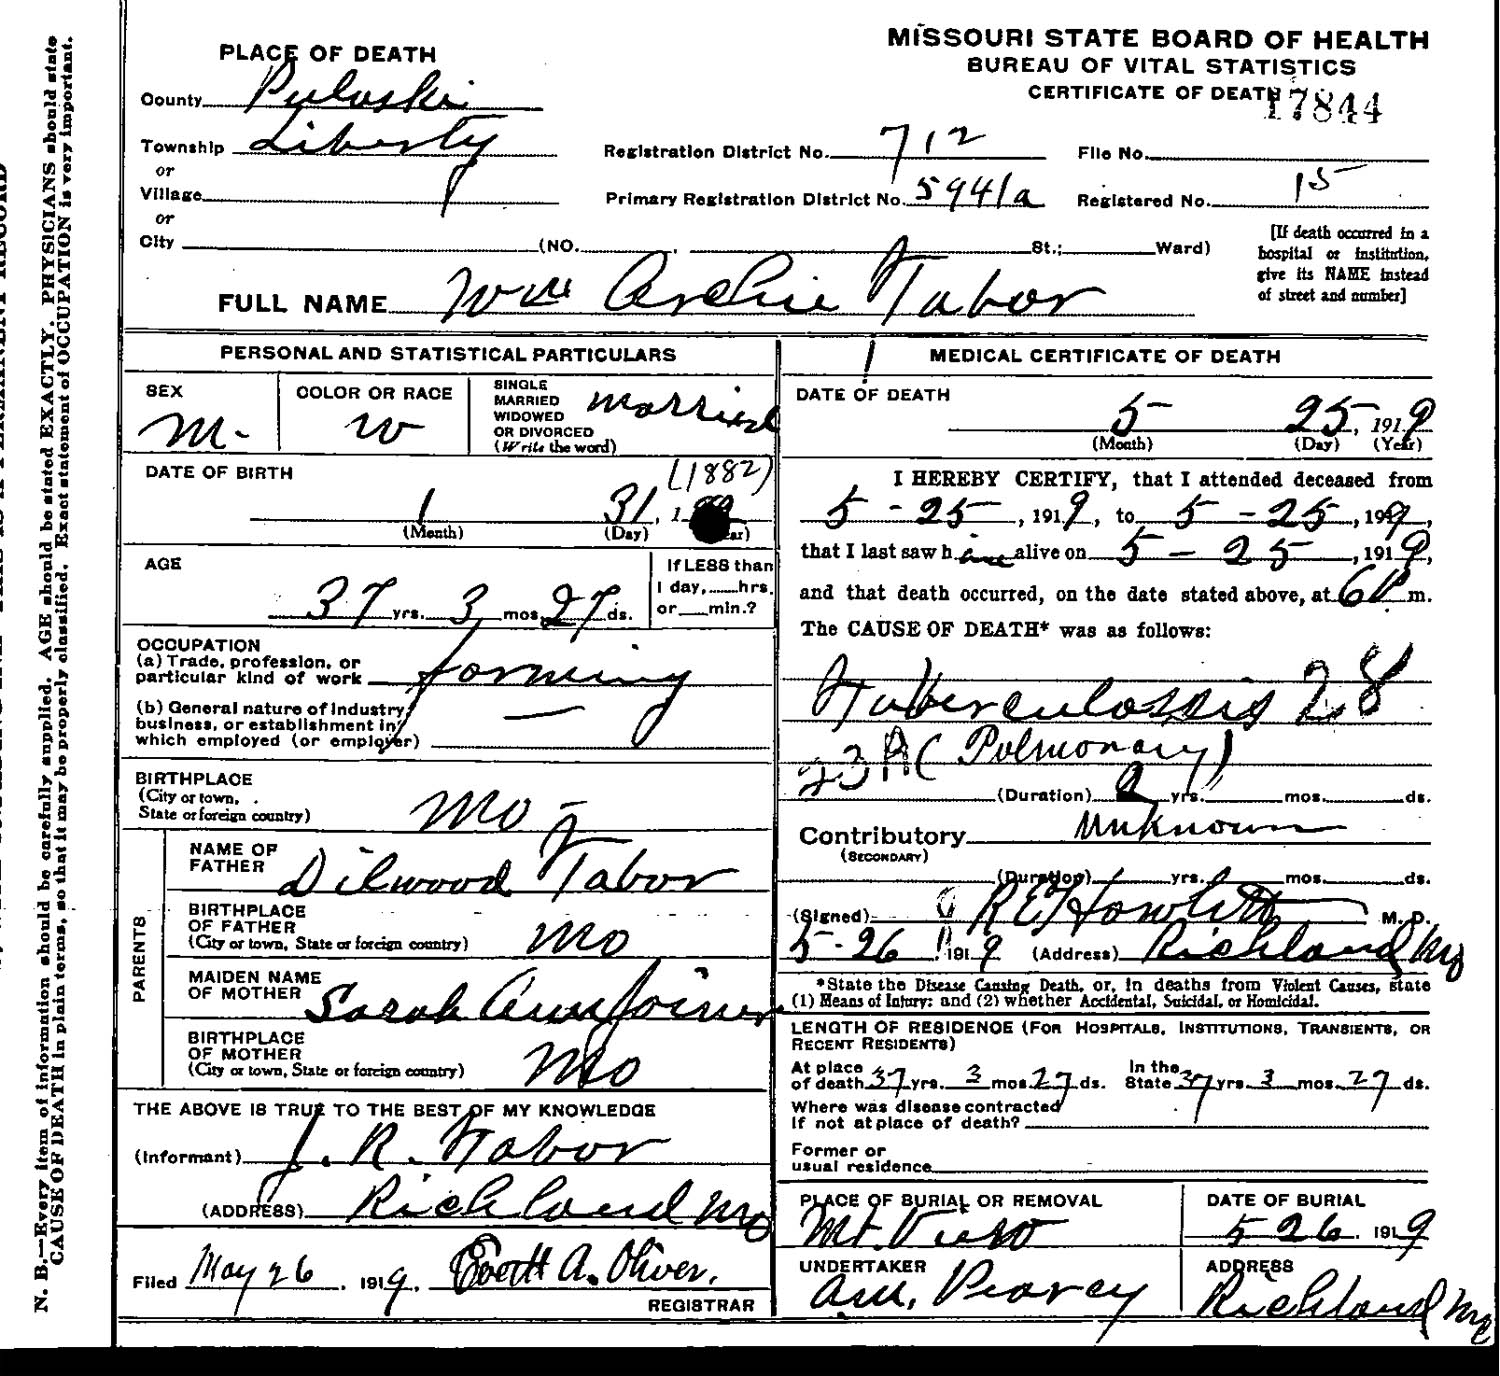 MISSOURI STATE BOARD OF HEALTH
BUREAU OF VITAL STATISTICS
CERTIFICATE OF DEATH
17844
PLACE OF DEATH
County Pulaski
Township Liberty
or
Village
or
City (NO. St.; Ward)
Registration District No. 712 File No.
Primary Registration District No. 5941a Registered No. 15
[If death occurred in a
hospital or institution,
give its NAME instead
of street and number]
FULL NAME Wm Archie Tabor
PERSONAL AND STATISTICAL PARTICULARS
SEX
M.
COLOR OR RACE
W
SINGLE
MARRIED
WIDOWED
OR DIVORCED
(Write the word)
Married
DATE OF BIRTH
(1882)
1 31, 1
(Month) (Day)
AGE
37 yrs. 3 mos. 27 ds.
If LESS than
1 day, hrs.
or min.?
OCCUPATION
(a) Trade, profession, or
particular kind of work farming
(b) General nature of industry,
business, or establishment in
which employed (or employer) —
BIRTHPLACE
(City or town,
State or foreign country)
Mo
PARENTS
NAME OF
FATHER
Dilwood Tabor
BIRTHPLACE
OF FATHER
(City or town, State or foreign country)
Mo
MAIDEN NAME
OF MOTHER
Sarah Ann Joiner
BIRTHPLACE
OF MOTHER
(City or town, State or foreign country)
Mo
THE ABOVE IS TRUE TO THE BEST OF MY KNOWLEDGE
(Informant) J. R. Tabor
(ADDRESS) Richland Mo
Filed May 26, 1919, Everett A. Oliver.
REGISTRAR
MEDICAL CERTIFICATE OF DEATH
DATE OF DEATH
5 25, 1919
(Month) (Day) (Year)
I HEREBY CERTIFY, that I attended deceased from
5-25, 1919, to 5-25, 1919,
that I last saw him alive on 5-25, 1919,
and that death occurred, on the date stated above, at 6 P m.
The CAUSE OF DEATH* was as follows:
Tuberculossis 28
23A (Pulmonary)
(Duration) yrs. mos. ds.
Contributory Unknown
(SECONDARY)
(Duration) yrs. mos. ds.
(Signed) R E Howlett M. D.
5-26 1919 (Address) Richland Mo
*State the Disease Causing Death, or, in deaths from Violent Causes, state
(1) Means of Injury; and (2) whether Accidental, Suicidal, or Homicidal.
LENGTH OF RESIDENCE (FOR HOSPITALS, INSTITUTIONS, TRANSIENTS, OR
RECENT RESIDENTS)
At place In the
of death 37 yrs. 3 mos. 27 ds. State 37 yrs. 3 mos. 27 ds.
Where was disease contracted
If not at place of death?
Former or
usual residence
PLACE OF BURIAL OR REMOVAL
Mt. View
DATE OF BURIAL
5 26, 1919
UNDERTAKER
A.M. Pearcy
ADDRESS
Richland Mo
N. B.—Every item of information should be carefully supplied. AGE should be stated EXACTLY. PHYSICIANS should state
CAUSE OF DEATH in plain terms, so that it may be properly classified. Exact statement of OCCUPATION is very important.